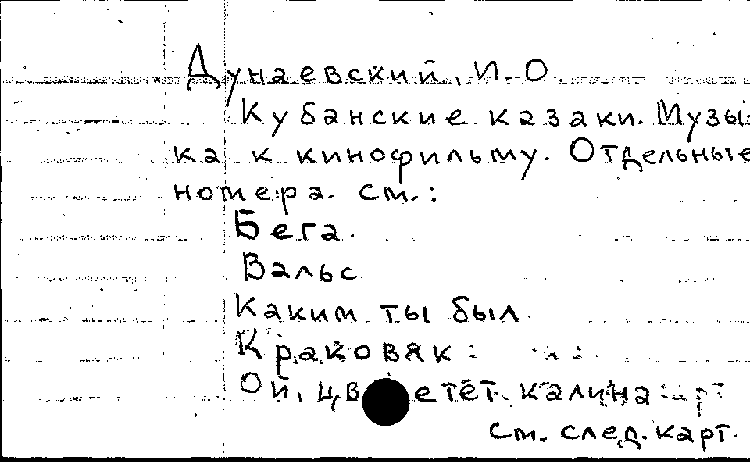 Дунаевский, И. О.
Кубанские казаки. Музы-
ка к кинофильму. Отдельные
номера. см.:
Бега.
Вальс
Каким ты был
Краковяк
Ой, цветет калина
см. след. карт.